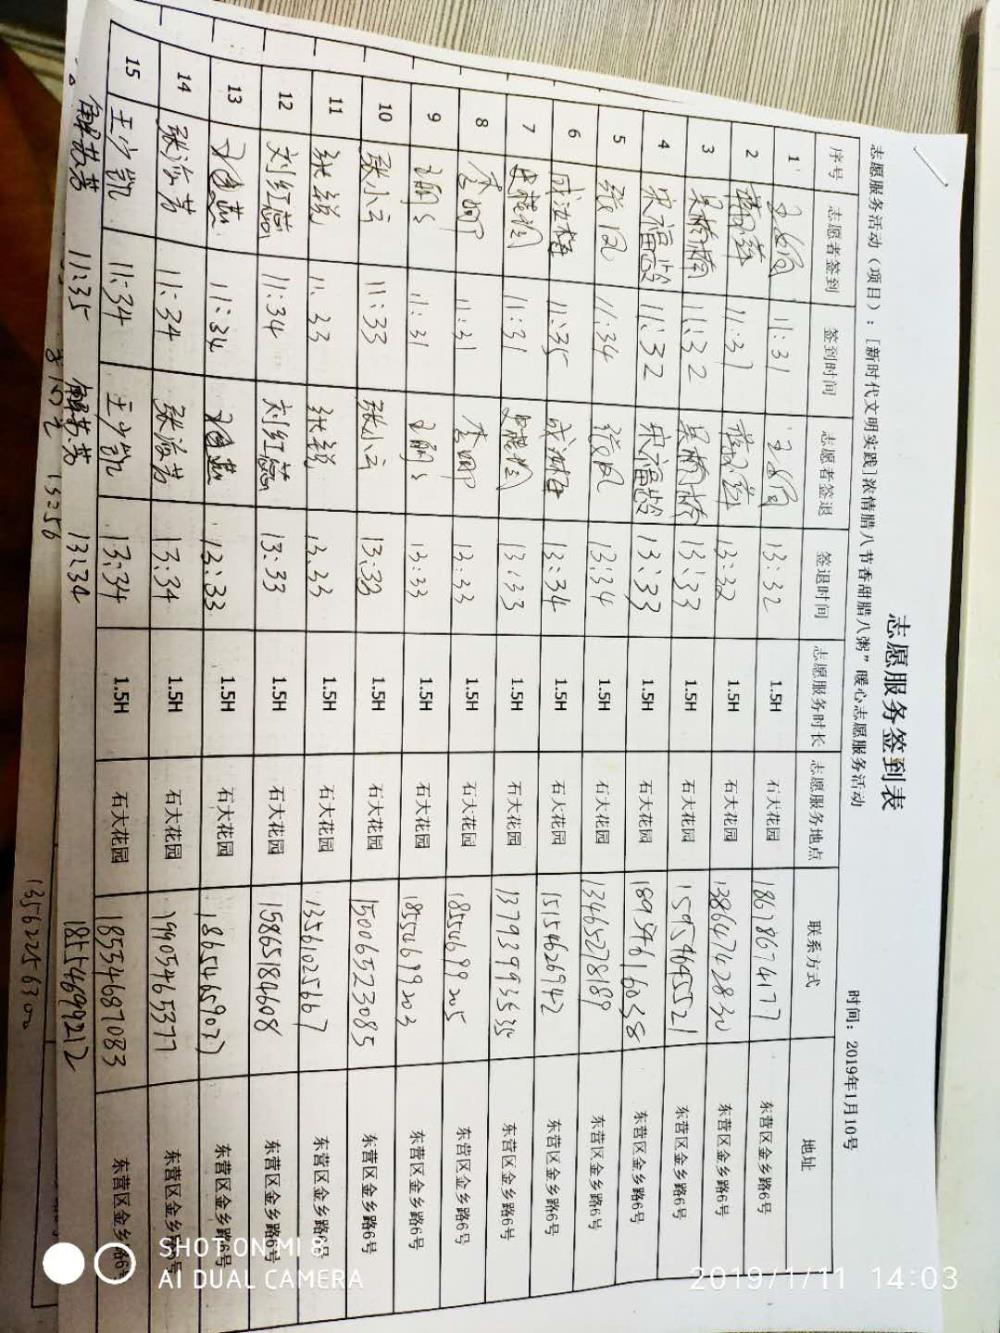 志愿服务签到表
志愿服务活动（项目）：[新时代文明实践]浓情腊八节香甜腊八粥”暖心志愿服务活动 时间：2019年1月10号
序号 志愿者签到 签到时间 志愿者签退 签退时间 志愿服务时长 志愿服务地点 联系方式 地址
1 11:31 13:32 1.5H 石大花园 18678674177 东营区金乡路6号
2 11:31 13:32 1.5H 石大花园 13864742830 东营区金乡路6号
3 11:32 13:33 1.5H 石大花园 15954645521 东营区金乡路6号
4 宋福龄 11:32 宋福龄 13:33 1.5H 石大花园 18954616038 东营区金乡路6号
5 11:34 13:34 1.5H 石大花园 13465278189 东营区金乡路6号
6 11:35 13:34 1.5H 石大花园 15154626942 东营区金乡路6号
7 11:31 13:33 1.5H 石大花园 13793993535 东营区金乡路6号
8 李娜 11:31 李娜 13:33 1.5H 石大花园 18554699205 东营区金乡路6号
9 11:31 13:33 1.5H 石大花园 18554699203 东营区金乡路6号
10 张小云 11:33 张小云 13:33 1.5H 石大花园 15006523085 东营区金乡路6号
11 张锐 11:33 张锐 13.33 1.5H 石大花园 13561025667 东营区金乡路6号
12 刘红蕊 11:34 刘红蕊 13:33 1.5H 石大花园 15865184608 东营区金乡路6号
13 11:34 13:33 1.5H 石大花园 东营区金乡路6号
14 11:34 13:34 1.5H 石大花园 19905465377 东营区金乡路6号
15 王少凯 11:34 王少凯 13:34 1.5H 石大花园 18554687083 东营区金乡路6号
解芳芳 11:35 解芳芳 13:34 18554699212
SHOT ON MI 8
AI DUAL CAMERA
2019/1/11 14:03